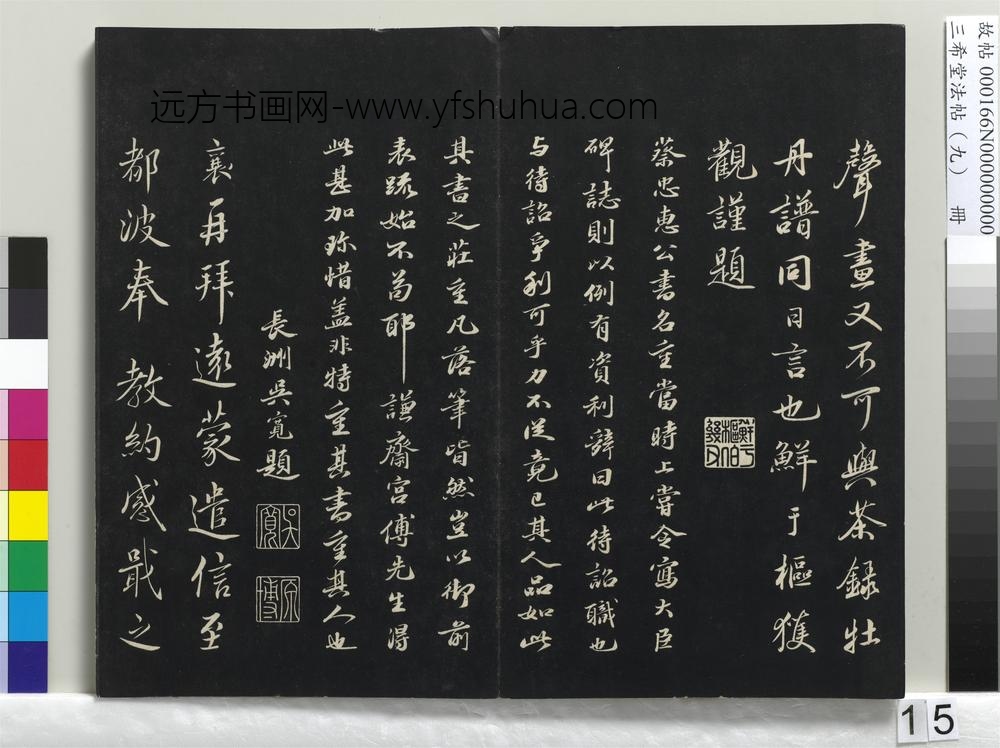 聲畫又不可與茶錄牡
丹譜同日言也鮮于樞獲
觀謹題
蔡忠惠公書名重當時上嘗令寫大臣
碑誌則以例有資利辭曰此待詔職也
与待詔爭利可乎力不從竟已其人品如此
其書之莊重凡落筆皆然豈以御前
表疏始不苟耶謙齋宮傅先生得
此甚加珎惜盖非特重其書重其人也
長洲吳寬題
吳寬
原博
襄再拜遠蒙遣信至
都波奉 教約感戢之
远方书画网-www.yfshuhua.com
故帖 000166N000000000
三希堂法帖(九) 冊
15